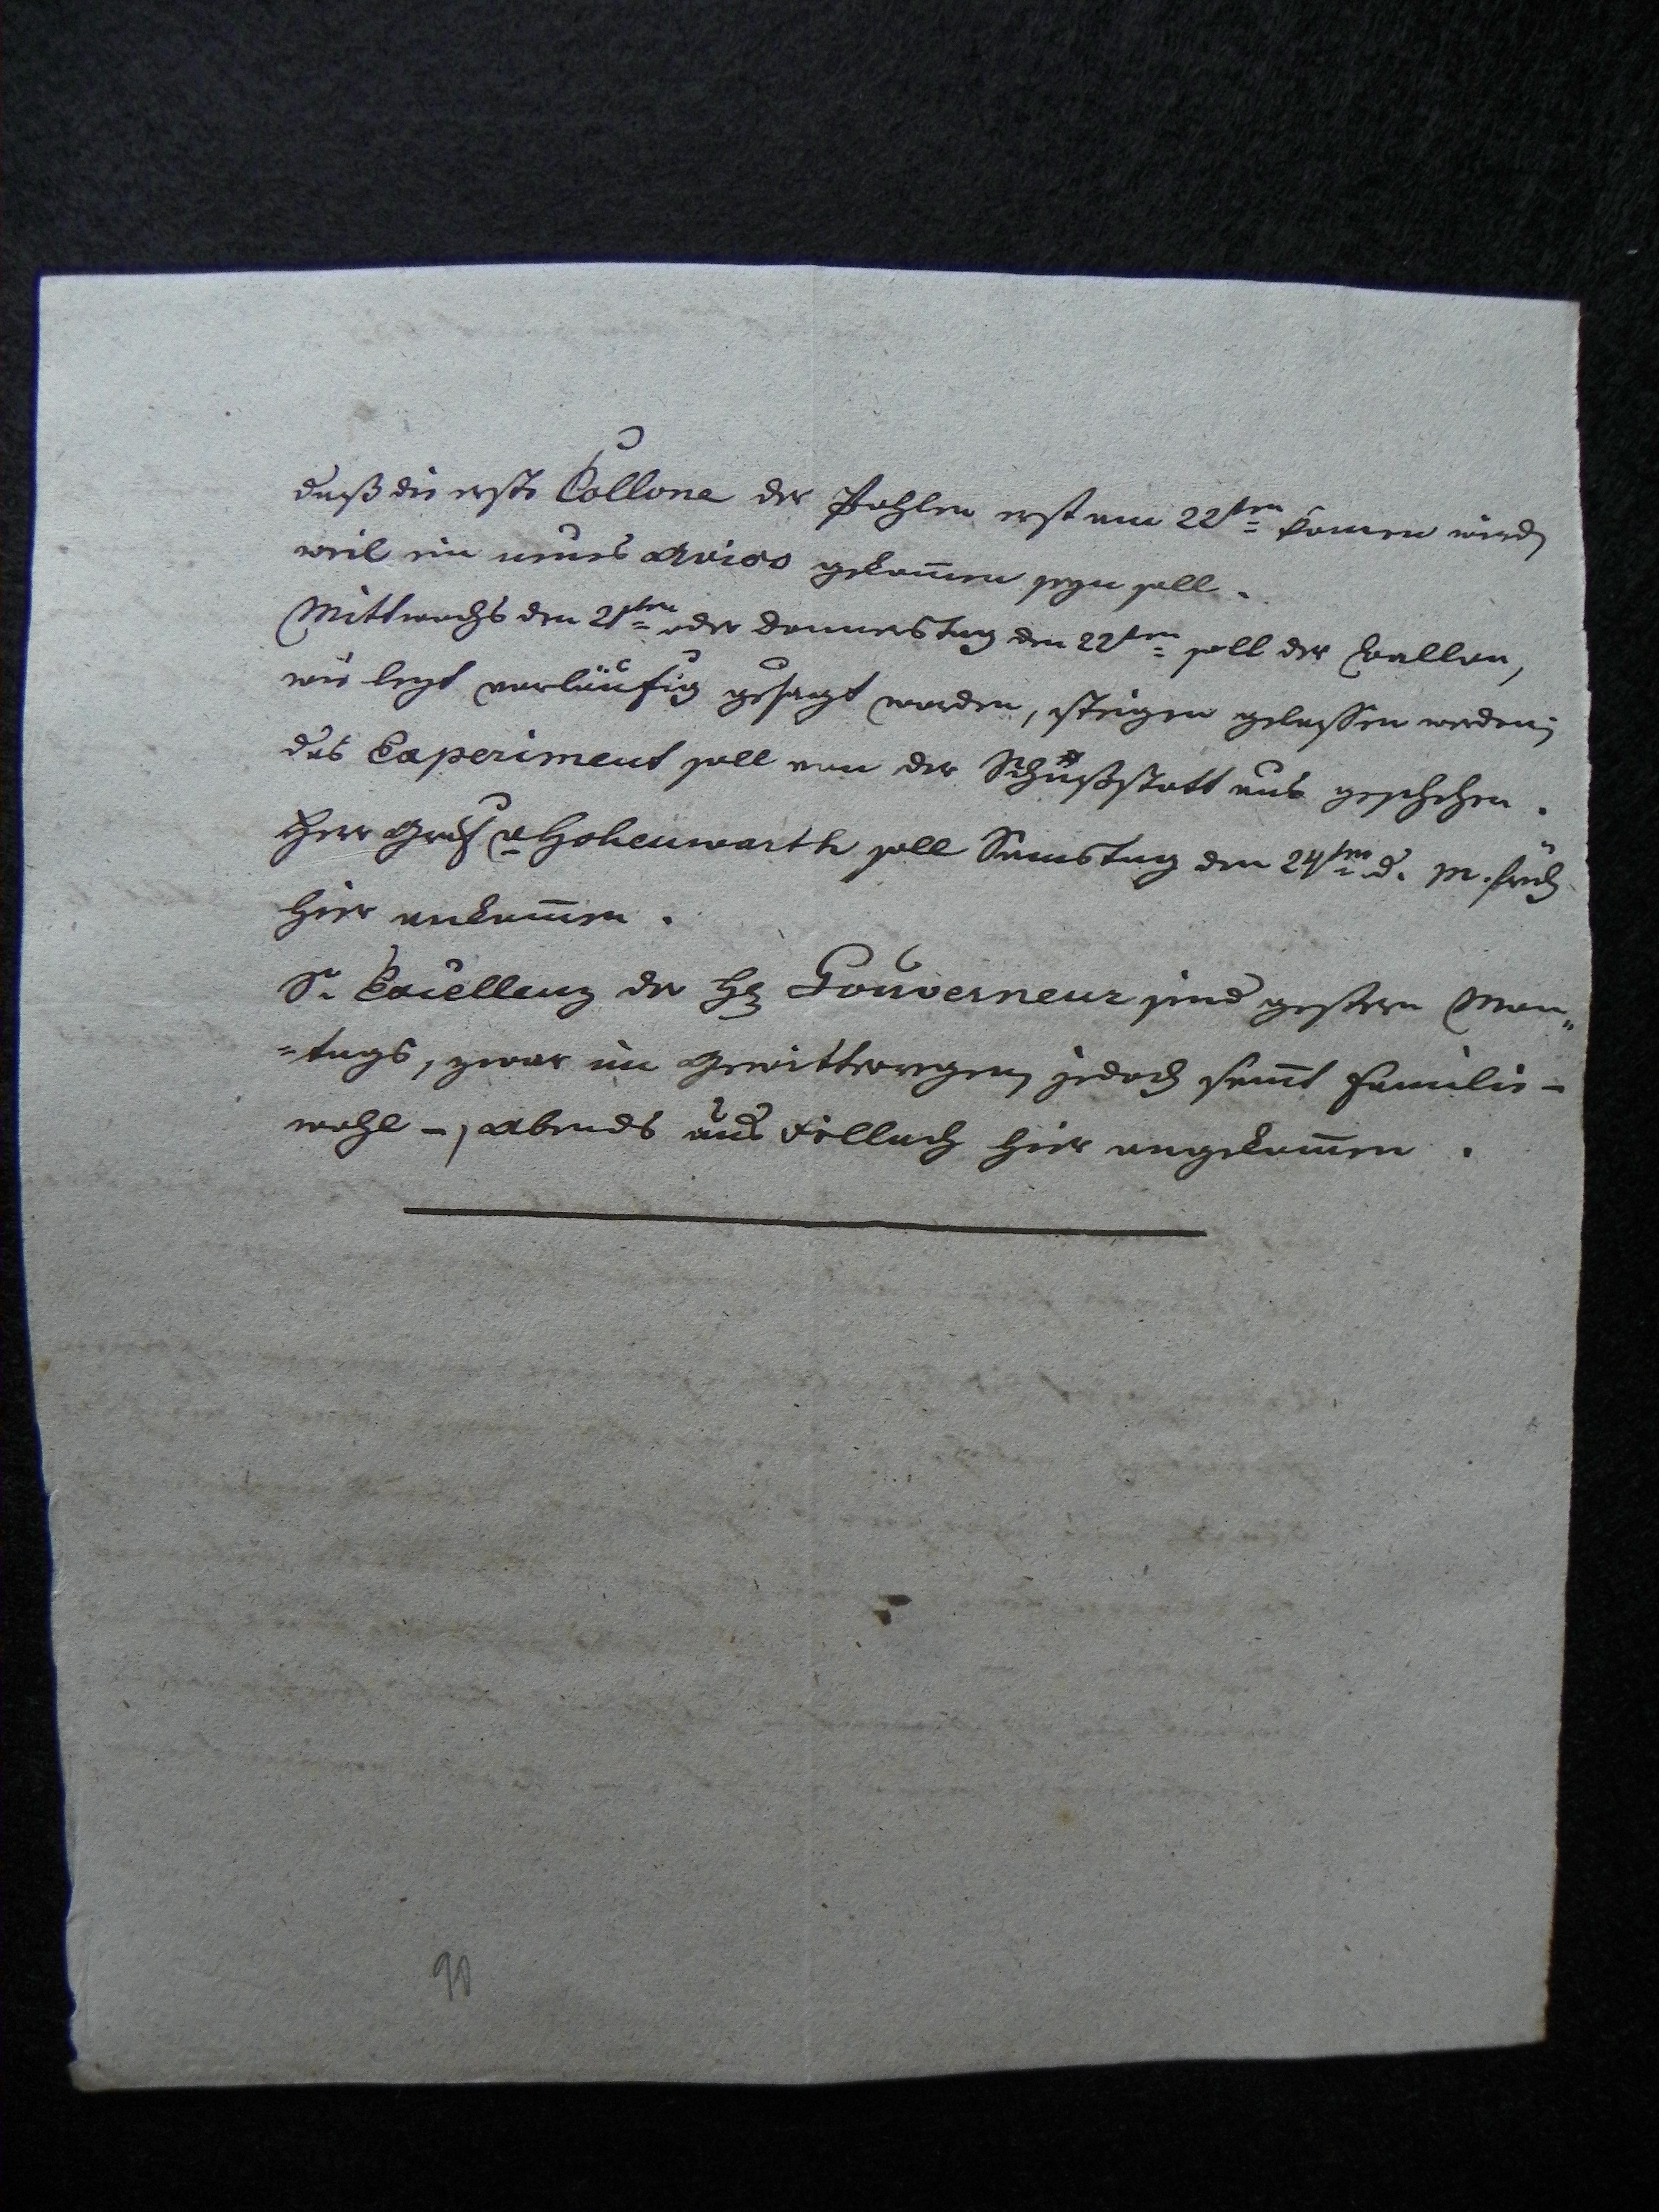 daß die erste Collone der Pohlen erst am 22ten komen wird,
weil ein neues Aviso gekom̄en seyn soll.
Mittwochs den 21ten oder Donnerstag den 22ten soll der Ballon,
wie vorläufig gesagt worden, steigen gelassen werden;
das Experiment soll von der Schußstatt aus geschehen.
Herr Graf v Hohenwarth soll Samstag den 24ten d. M. früh
hier ankom̄en.
Sr Excellenz der H. Gouverneur sind gestern Mon„
=tags, zwar im Gewitterregen jedoch sam̄t Familie –
wohl –, Abends aus Villach hier angekom̄en.
90